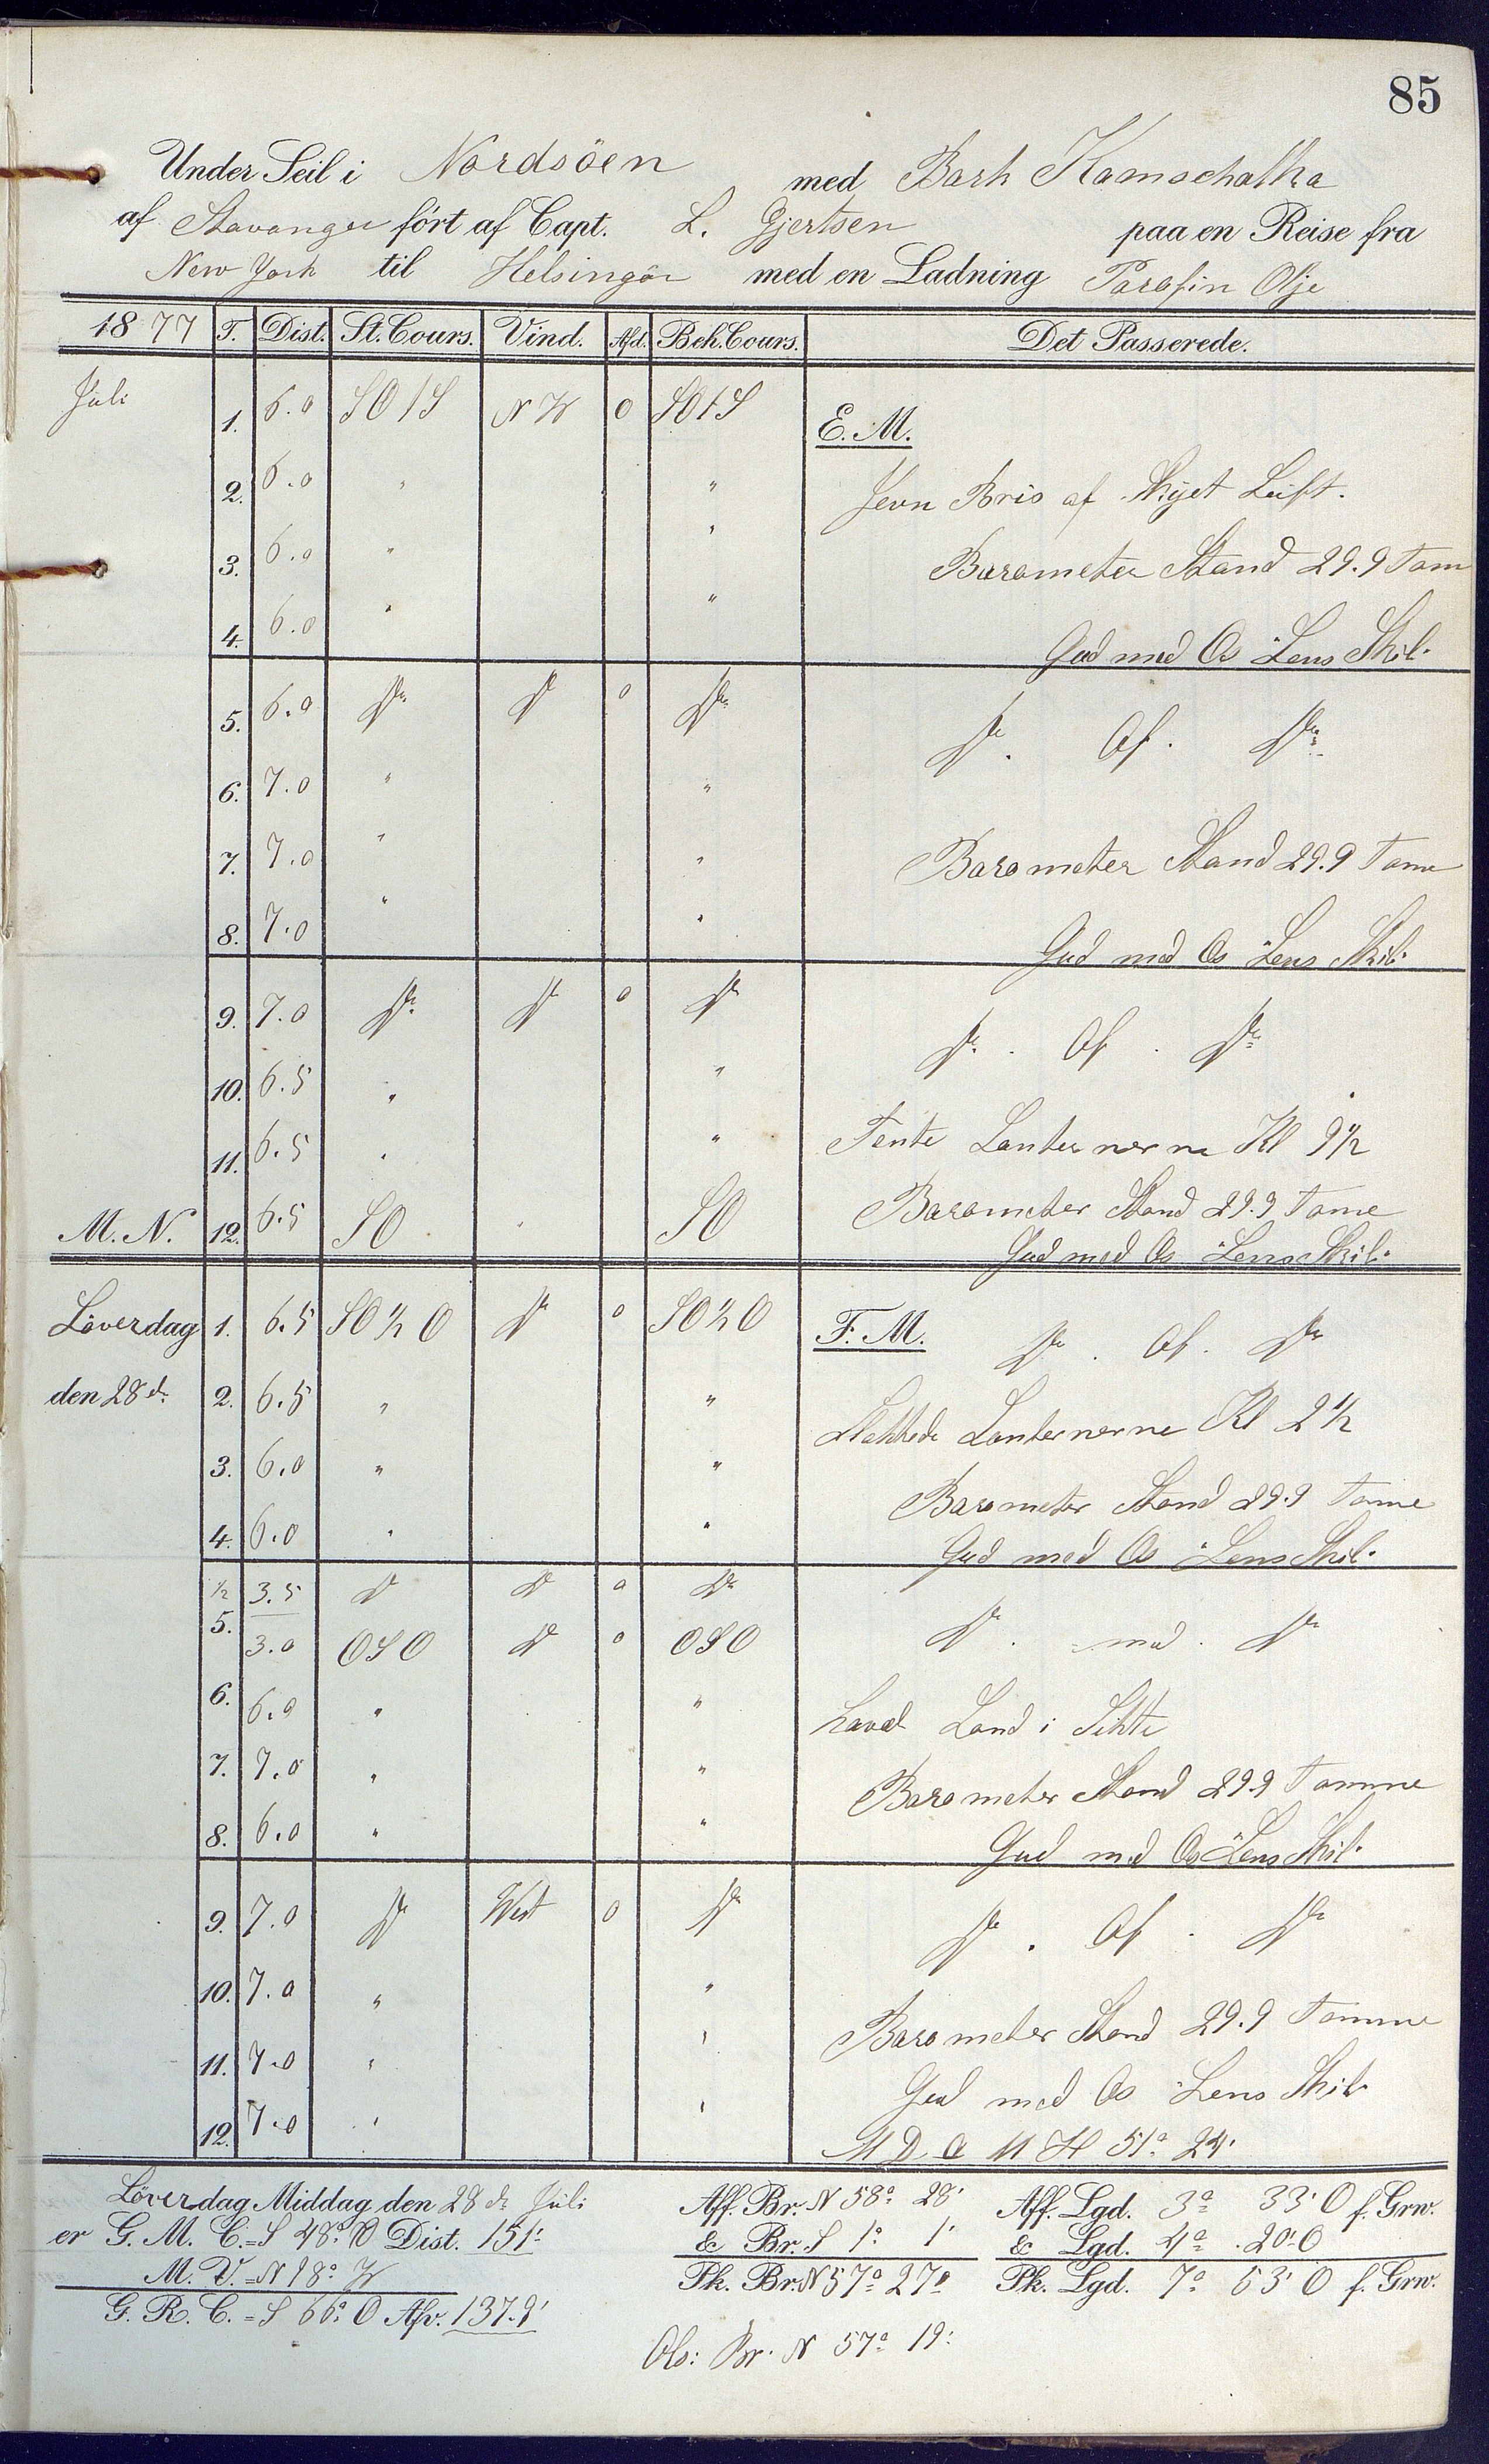 85
Under Seil i Nordsöen med Bark Kamschatka
af Stavanger fört af Capt. L. Gjertsen paa en Reise fra
New York til Helsingör med en Ladning Parafin Olje
1877 T. Dist. St. Cours. Vind. Afd. Beh. Cours. Det Passerede.
Juli 1. 6.0 SO 1 S NW 0 SO 1 S E. M.
2. 6.0 " " Jevn Bris af Skyet Luft.
3. 6.0 " " Barometer Stand 29.9 Tom
4. 6.0 " " Gud med Os Lens Skib.
5. 6.0 Do Do 0 Do Do. Af. Do
6. 7.0 " "
7. 7.0 " " Barometer Stand 29.9 Tome
8. 7.0 " " Gud med Os Lens Skib.
9. 7.0 Do Do 0 Do Do. Af. Do
10. 6.5 " "
11. 6.5 " " Tente Lanternerne Kl 9 1/2
M. N. 12. 6.5 SO " SO Barometer Stand 29.9 Tome
Gud med Os Lens Skib.
Löverdag 1. 6.5 SO 1/2 O Do 0 SO 1/2 O F. M. Do. Af. Do
den 28 d. 2. 6.5 " " Slakkede Lanternerne Kl 2 1/2
3. 6.0 " " Barometer Stand 29.9 Tomme
4. 6.0 " " Gud med Os Lens Skib.
1/2 3.5 Do Do 0 Do
5. 3.0 OSO Do 0 OSO Do. med. Do
6. 6.0 " " Land i Sikte
7. 7.0 " " Barometer Stand 29.9 Tomme
8. 6.0 " " Gud med Os Lens Skib.
9. 7.0 Do West 0 Do Do. Af. Do
10. 7.0 " "
11. 7.0 " " Barometer Stand 29.9 Tomme
Gud med Os Lens Skib
12. 7.0 " " M D O M H 51° 24'
Löverdag Middag den 28 d. Juli Aff. Br. N 58° 28' Aff. Lgd. 3° 33' O f. Grw.
er G. M. C. = S 48° O Dist. 151' & Br. S 1° 1' & Lgd. 4° 20' O
M. V. = N 18° W Pk. Br. N 57° 27' Pk. Lgd. 7° 53' O f. Grw.
G. R. C. = S 66° O Afv. 137.9'
Obs: Br. N 57° 19'